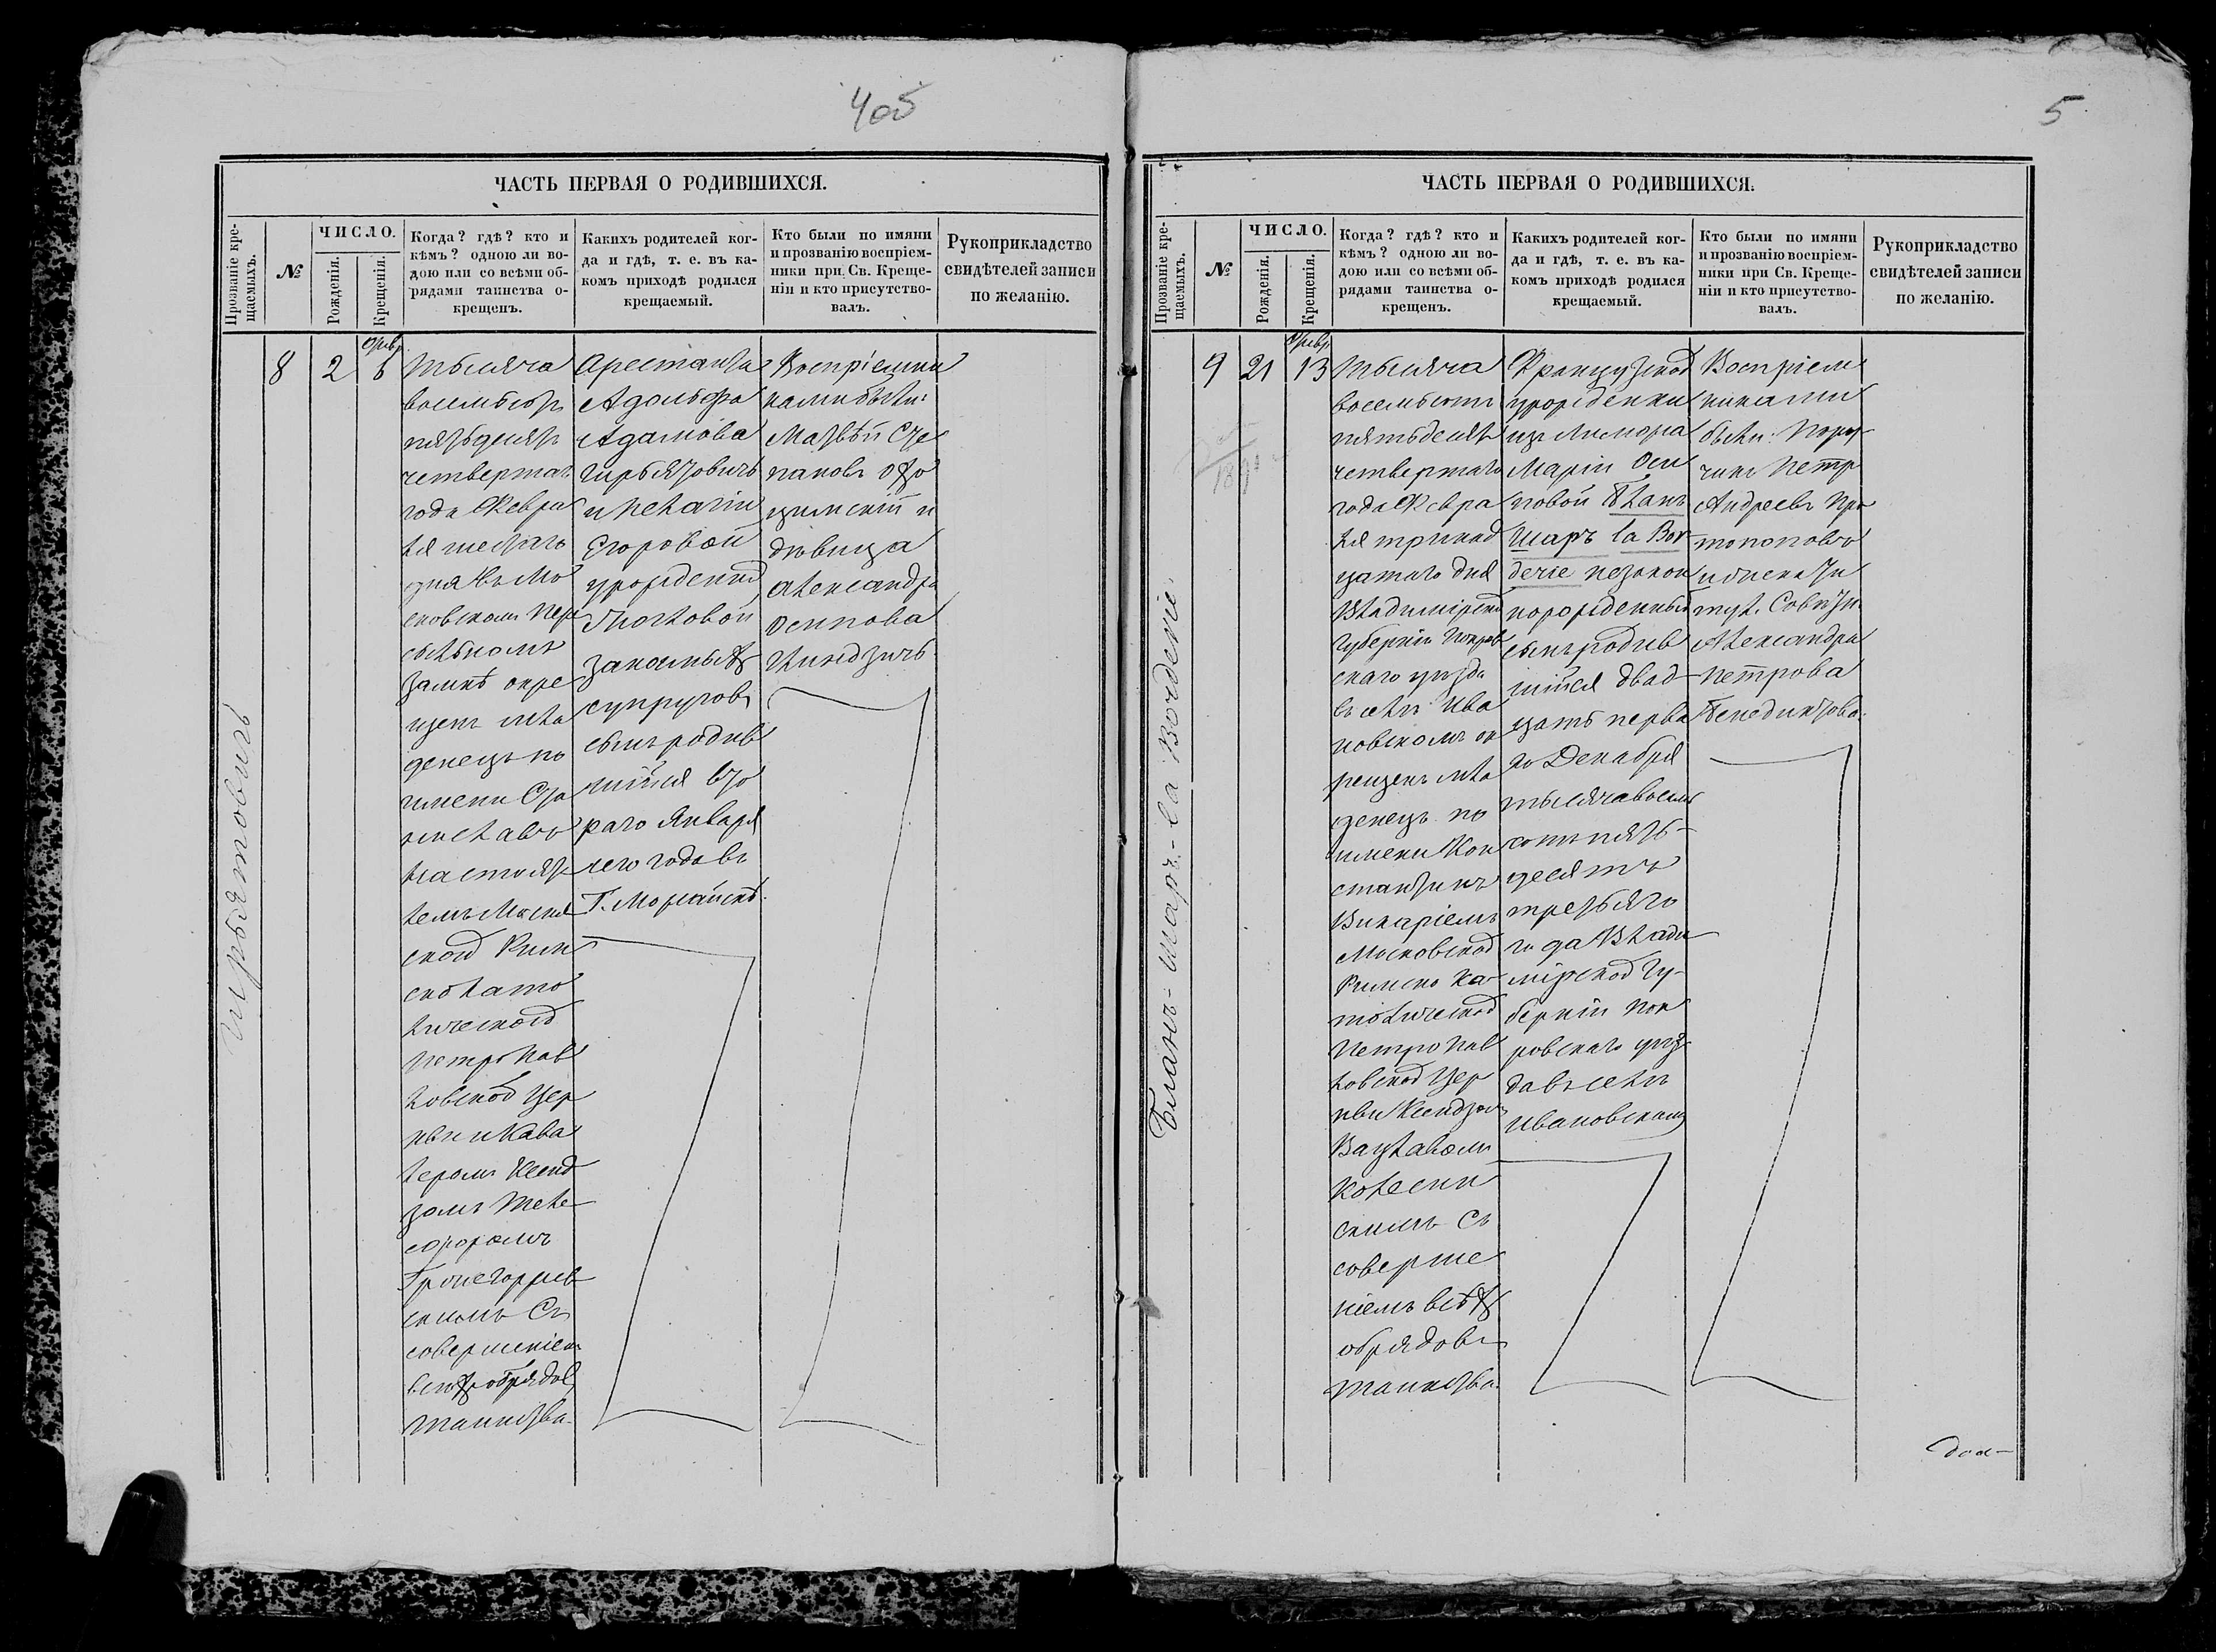 4об
ЧАСТЬ ПЕРВАЯ О РОДИВШИХСЯ.
Прозваніе кре-
щаемыхъ.
№
ЧИСЛО.
Рожденія.
Крещенія.
Когда? гдѣ? кто и
кѣмъ? одною ли во-
дою или со всѣми об-
рядами таинства о-
крещенъ.
Какихъ родителей ког-
да и гдѣ, т. е. въ ка-
комъ приходѣ родился
крещаемый.
Кто были по имяни
и прозванію воспріем-
ники при Св. Креще-
ніи и кто присутство-
валъ.
Рукоприкладство
свидѣтелей записи
по желанію.
Гирьятовичъ
8
2
Февр.
6
Тысяча
восемьсотъ
пятьдесятъ
четвертаго
года Февра
ля шестаго
дня въ Мо
сковскомъ Пере
сыльномъ
замкѣ окре
щенъ мла
денецъ по
имени Ста
ниславъ
настоят
лемъ Москов
ской Рим
ско като
лической
Петро Пав
ловской Цер
кви и Кава
леромъ Ксенд
зомъ Теле
сфоромъ
скимъ Съ
совершеніемъ
всѣхъ обрядовъ
таинства.
Арестанта
Адольфа
Адамова
Гирьятовичъ
и Пелагіи
Егоровой
урожденной
законныхъ
супруговъ
сынъ родив
шійся вто
раго Января
сего года въ
Г. Можайскѣ.
Воспріемни
ками были:
Матвѣй Сте
пановъ
и
дѣвица
Александра
Осипова
5
ЧАСТЬ ПЕРВАЯ О РОДИВШИХСЯ.
Прозваніе кре-
щаемыхъ.
№
ЧИСЛО.
Рожденія.
Крещенія.
Когда? гдѣ? кто и
кѣмъ? одною ли во-
дою или со всѣми об-
рядами таинства о-
крещенъ.
Какихъ родителей ког-
да и гдѣ, т. е. въ ка-
комъ приходѣ родился
крещаемый.
Кто были по имяни
и прозванію воспріем-
ники при Св. Креще-
ніи и кто присутство-
валъ.
Рукоприкладство
свидѣтелей записи
по желанію.
Бланъ-шаръ-la Borderie.
9
21
Февр.
13
Тысяча
восемьсотъ
пятьдесятъ
четвертаго
года Февра
ля тринад
цатаго дня
Владимірской
Губерніи Покров
скаго уѣзда
въ селѣ Ива
новскомъ ок
рещенъ мла
денецъ по
имени Кон
стантинъ
Викаріемъ
Московской
Римско Ка
толической
Петро Пав
ловской Цер
кви Ксендзомъ
Вацлавомъ
Колесин
скимъ Съ
соверше
ніемъ всѣхъ
обрядовъ
таинства.
Французской
урожденки
изъ Лиможа
Маріи Оси
повой Бланъ
шаръ la Bor
derie незакон
норожденный
сынъ родив
шійся двад
цать перва
го Декабря
тысяча восемь
сотъ пять-
десятъ
третьяго
года Влади
мірской Гу-
берніи Пок
ровскаго уѣз
да въ селѣ
Ивановскомъ
Воспріем
никами
были: Пору
чикъ Петръ
Андреевъ Про
топоповъ
тул. Совѣтн.
Александра
Петрова
Бенедиктова.